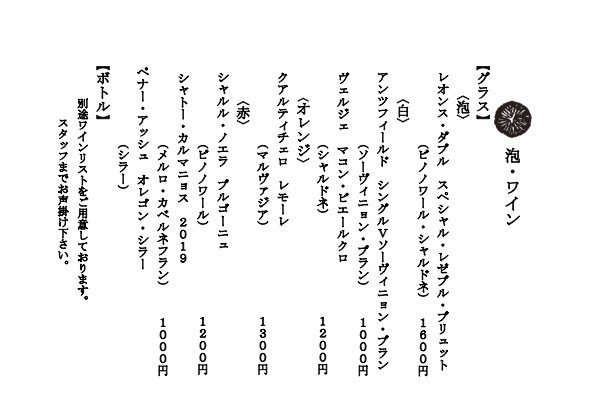 泡・ワイン
【グラス】
〈泡〉
レオンス・ダブル　スペシャル・レゼブル・ブリュット
（ピノノワール・シャルドネ）　1600円
〈白〉
アンツフィールド　シングルVソーヴィニョン・ブラン
（ソーヴィニョン・ブラン）　1000円
ヴェルジェ　マコン・ピエールクロ
（シャルドネ）　1200円
〈オレンジ〉
クアルティチェロ　レモーレ
（マルヴァジア）　1300円
〈赤〉
シャルル・ノエラ　ブルゴーニュ
（ピノノワール）　1200円
シャトー・カルマニョス　2019
（メルロ・カベルネフラン）　1000円
ペナー・アッシュ　オレゴン・シラー
（シラー）
【ボトル】
別途ワインリストをご用意しております。
スタッフまでお声掛け下さい。